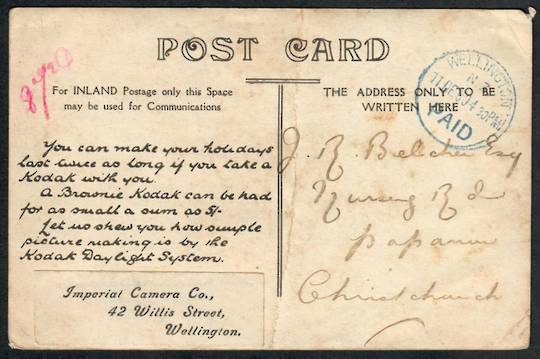 POST CARD
For INLAND Postage only this Space
may be used for Communications
THE ADDRESS ONLY TO BE
WRITTEN HERE
WELLINGTON
N.Z.
11 DE 04 4 30PM
PAID
You can make your holidays
last twice as long if you take a
Kodak with you.
A Brownie Kodak can be had
for as small a sum as 5/-
Let us shew you how simple
picture making is by the
Kodak Daylight System.
Imperial Camera Co.,
42 Willis Street,
Wellington.
J. R. Belcher Esq
Rd
Papanui
Christchurch